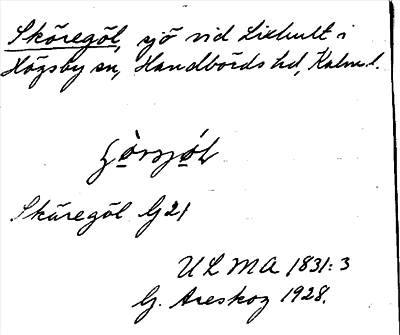 Sköregöl, sjö vid Lixhult i
Högsby sn, Handbörds hd, Kalm. l.
Sköregöl G21
ULMA 1831:3
G. Areskog 1928.